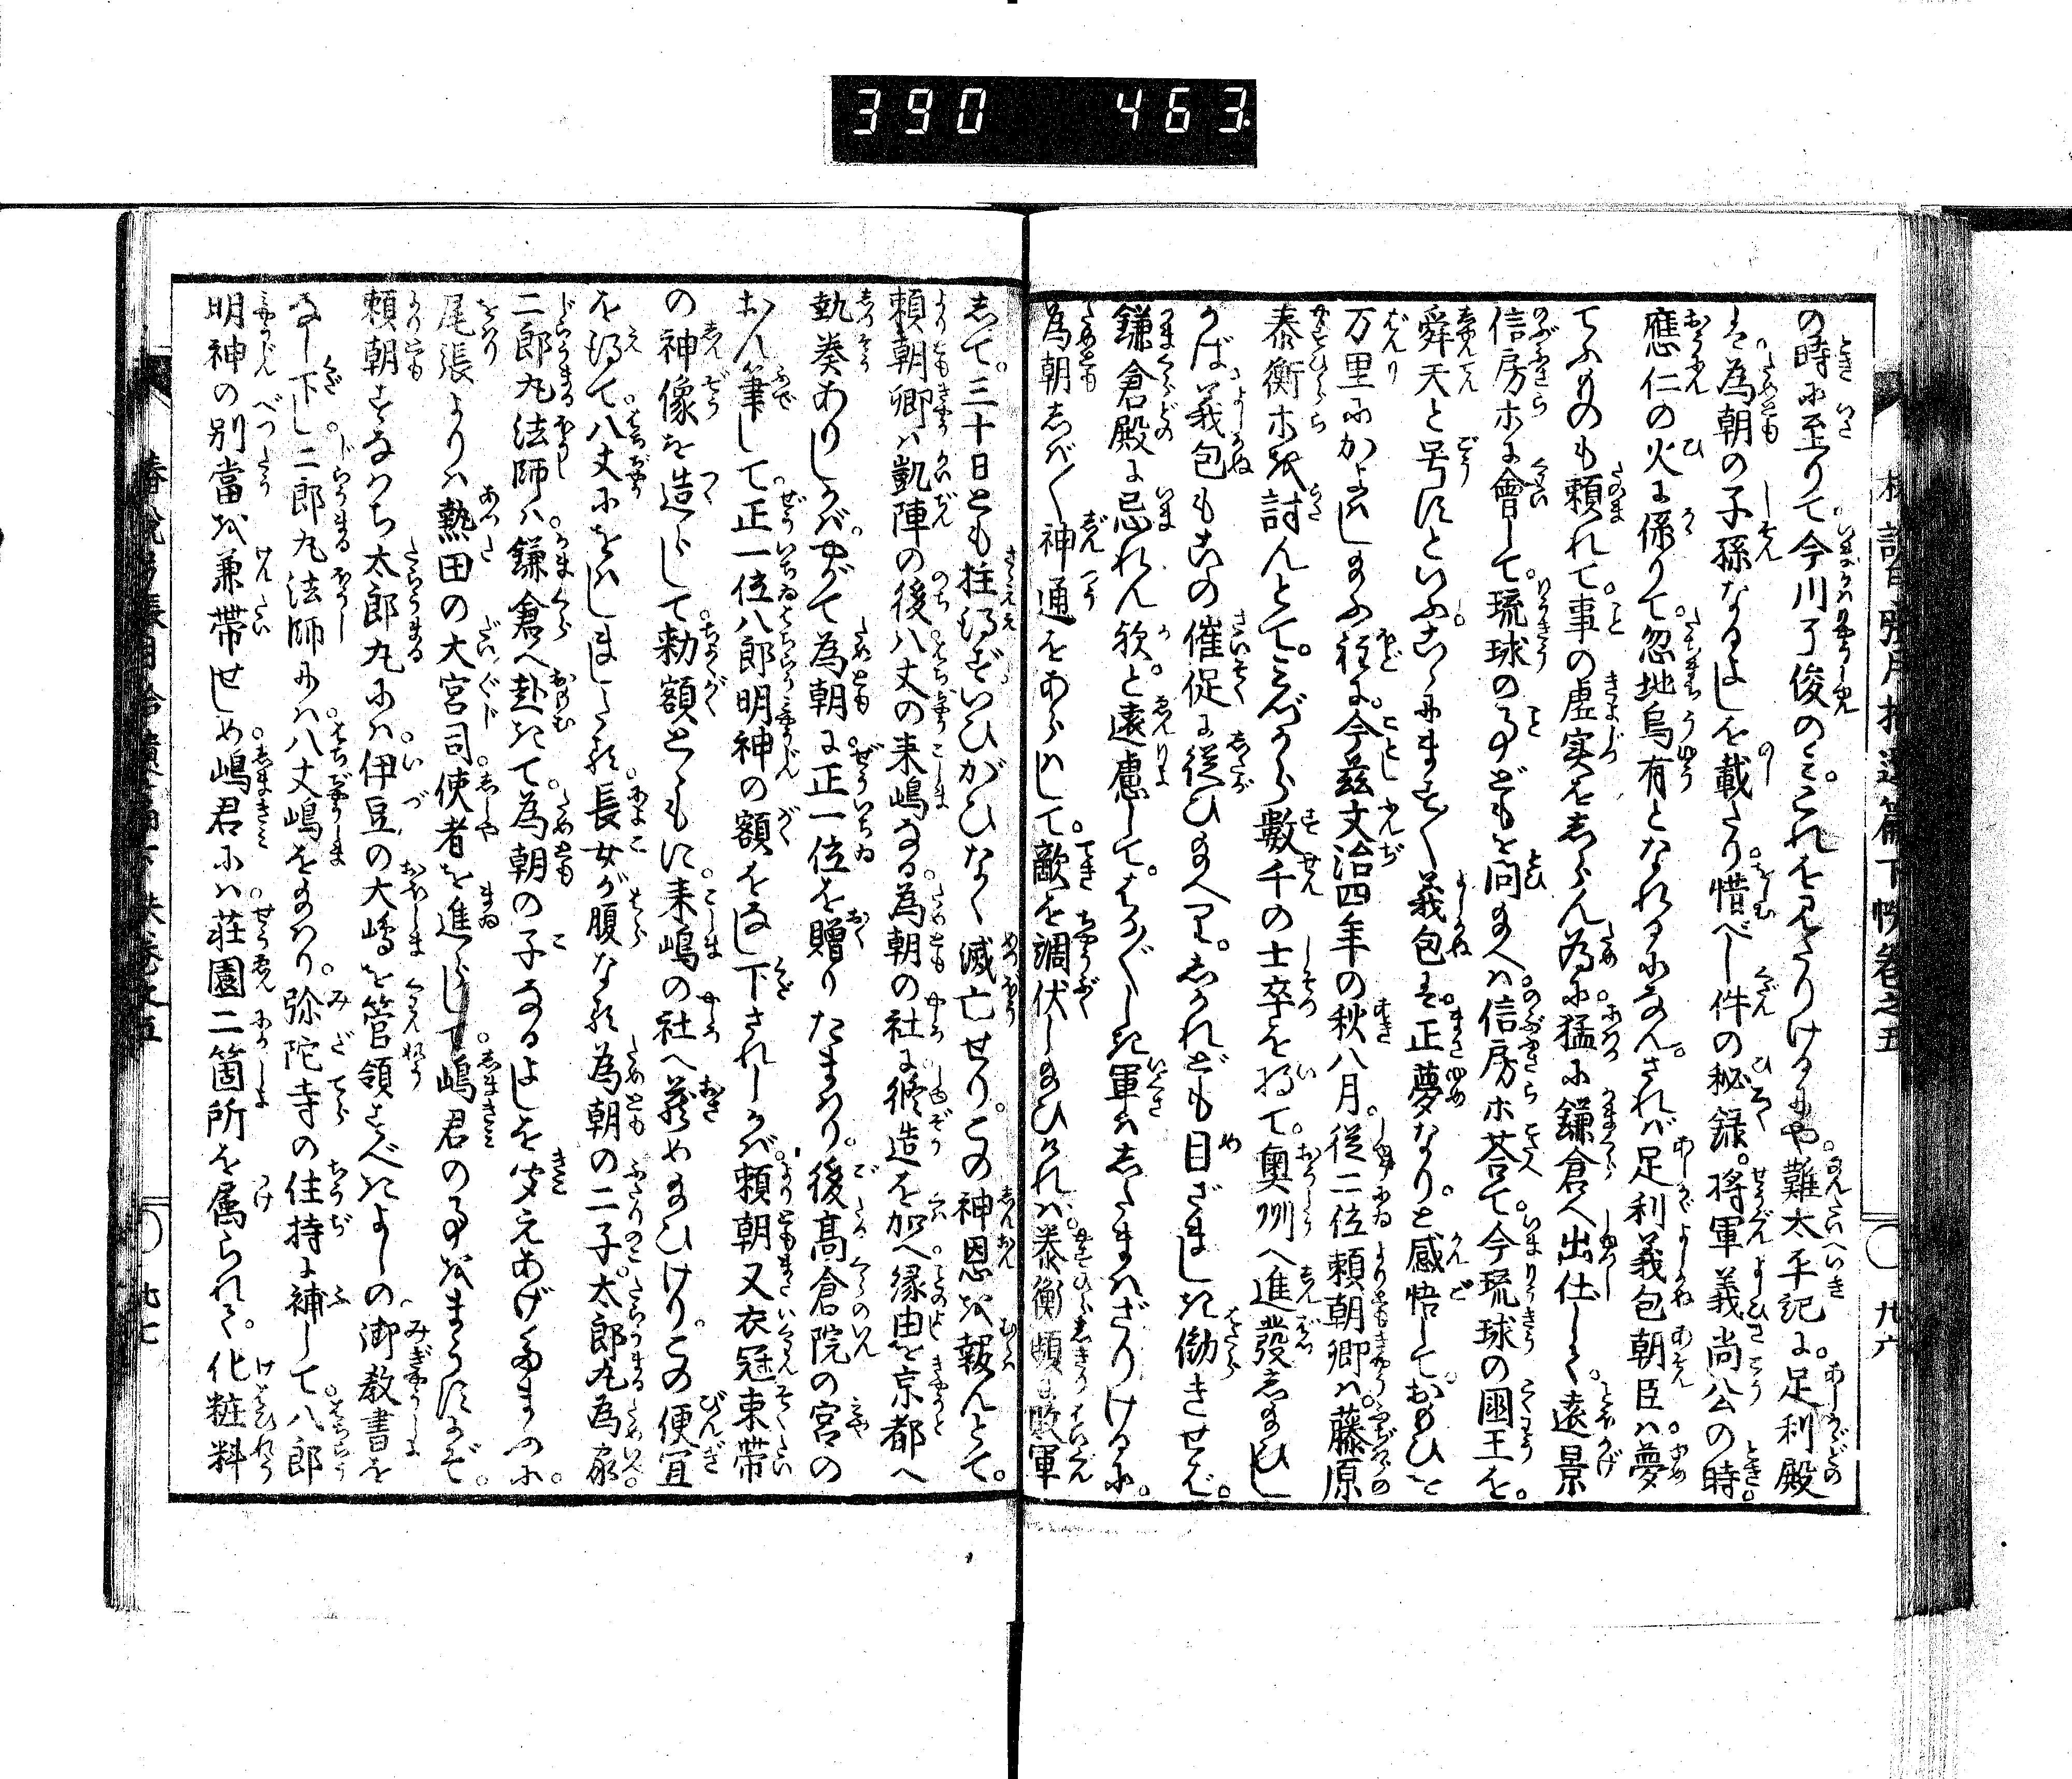 390 463
の時に至りて。今川了俊のミ。これを見たりけるにや。難太平記に。足利殿
は。為朝の子孫なるよしを載たり。惜べし件の秘録。将軍義尚公の時。
應仁の火に係りて。忽地烏有となれるになん。されバ足利義包朝臣ハ。夢
てふものも頼れて。事の虚実をしらん為に。猛に鎌倉へ出仕して。遠景
信房ホに會して。琉球の事どもを問給へハ。信房ホ荅て。今琉球の國王を。
舜天と号にといふ。こゝにますく義包は。正夢なり。と感悟して。おもひを
万里にかよハし給ふ程に。今茲文治四年の秋八月。従二位頼朝卿ハ。藤原
泰衡ホを討んとて。みづから數千の士卒を将て。奥州へ進發し給ひし
かば。義包もこの催促に従ひ給へり。しかれども目ざましき働きせば。
鎌倉殿に忌れん欤。と遠慮して。はかくしき軍ハしたまハざりけるに。
為朝しばく神通をあらハして。敵を調伏し給ひけれハ。泰衡頻に敗軍
して。三十日とも拄得ず。いひがひなく滅亡せり。この神恩を報んとて。
頼朝卿ハ凱陣の後。八丈の来嶋なる。為朝の社に修造を加へ。縁由を京都へ
執奏ありしかバ。やがて為朝に。正一位を贈りたまハり。後高倉院の宮の
おん筆して。正一位八郎明神の額をなし下されしかバ。頼朝又衣冠束帯
の神像を造らして。勅額とゝもに。来嶋の社へ蔵め給ひけり。この便宜
を得て。八丈にをハしましゝ。長女が腹なる為朝の二子。太郎丸為家。
二郎丸法師ハ。鎌倉へ赴きて。為朝の子なるよしを。聞えあげ給まつるに。
尾張よりハ熱田の大宮司。使者を進らして。嶋君の事をまうすにぞ。
頼朝すなハち太郎丸にハ。伊豆の大嶋を管領すべきよしの。御教書を
なし下し。二郎丸法師にハ。八丈嶋を給ハり。弥陀寺の住持に補して。八郎
明神の別當を兼帯せしめ。嶋君にハ。荘園二箇所を属られて。化粧料